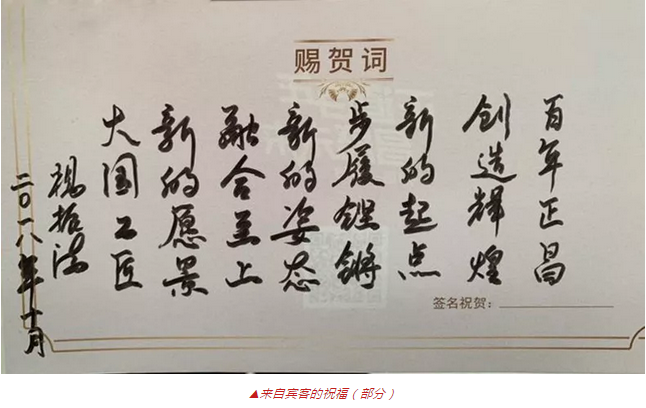 赐贺词
百年正昌
创造辉煌
新的起点
步履铿锵
新的姿态
融合至上
新的愿景
大国工匠
二〇一八年十月
签名祝贺：
▲来自宾客的祝福（部分）